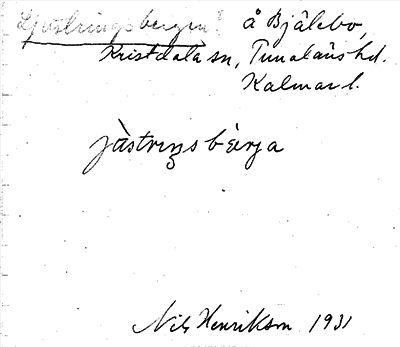 Ljustringsbergen? å Bjälebo,
Kristdala sn, Tunaläns hd.
Kalmar l.
jàstrıŋsbæ̀rja
Nils Henrikson 1931